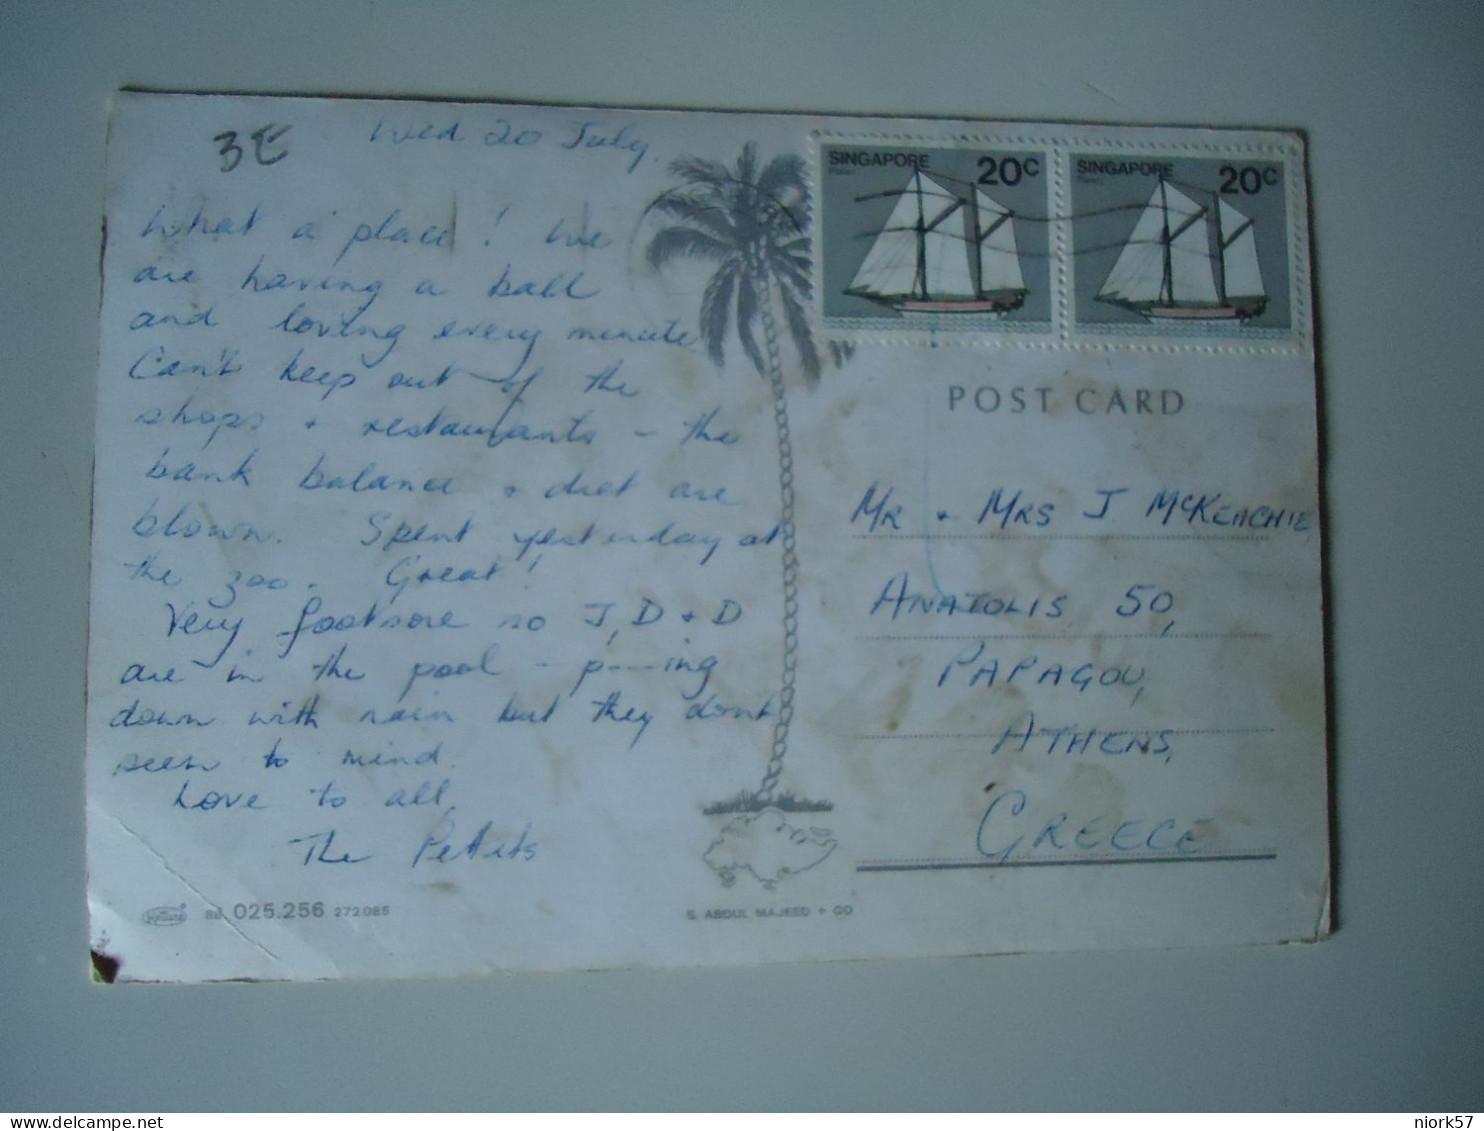 3E
Wed 20 July.
What a place! We
are having a ball
and loving every minute
Can't keep out of the
shops + restaurants - the
bank balance + diet are
blown. Spent yesterday at
the zoo. Great!
Very footsore so J, D + D
are in the pool - p---ing
down with rain but they dont
seem to mind.
Love to all,
The Pettits
SINGAPORE 20c
SINGAPORE 20c
POST CARD
MR + MRS J McKEACHIE,
ANATOLIS 50,
PAPAGOU,
ATHENS,
GREECE
025.256 272085
S. ABDUL MAJEED + CO
niork57